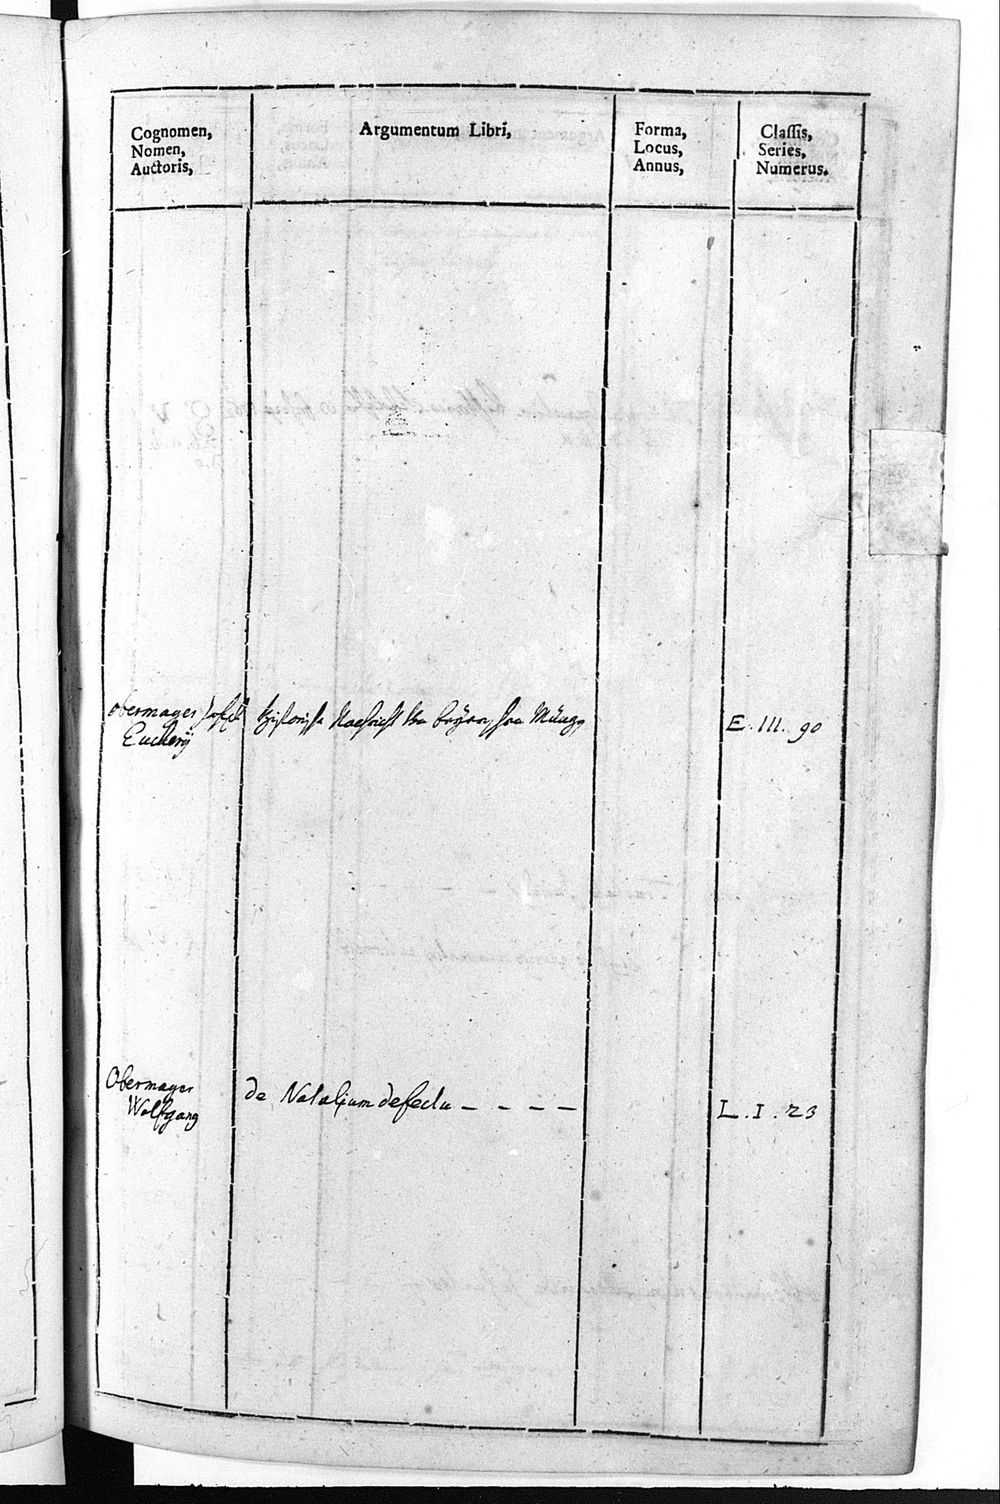 Cognomen,
Nomen,
Auctoris,
Argumentum Libri,
Forma,
Locus,
Annus,
Classis,
Series,
Numerus.
Obermayer Joseph
Eucherij
Historische Nachricht von bayerischen Münzen
E. III. 90
Obermayer
Wolfgang
de Natalium defectu - - - -
L. I. 23